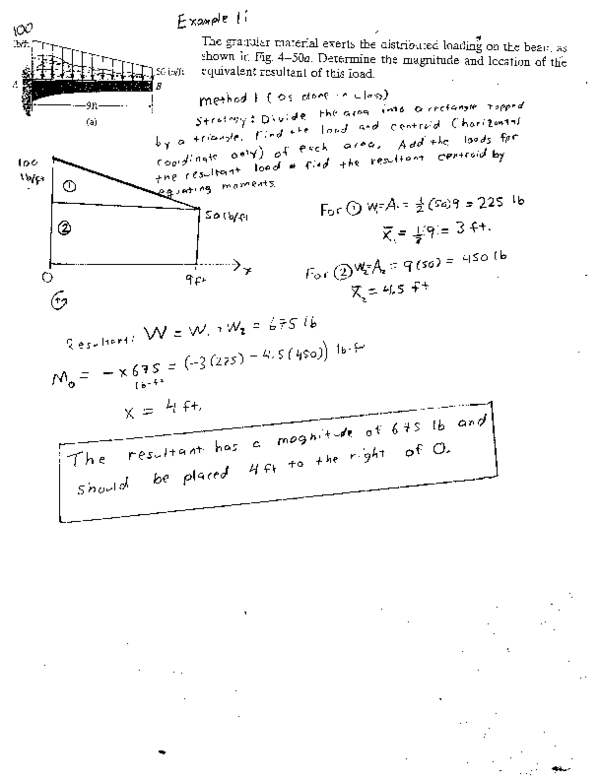 Example 1:
100
lb/ft
50 lb/ft
A
B
9 ft
(a)
The granular material exerts the distributed loading on the beam, as
shown in Fig. 4–50a. Determine the magnitude and location of the
equivalent resultant of this load.
Method 1 (as done in class)
Strategy: Divide the area into a rectangle topped
by a triangle. Find the load and centroid (horizontal
coordinate only) of each area. Add the loads for
the resultant load & find the resultant centroid by
equating moments.
100
lb/ft
①
50 lb/ft
②
O
9 ft
x
For ① W₁=A₁ = 1/2 (50)9 = 225 lb
x̄₁ = 1/3 · 9 = 3 ft.
For ② W₂=A₂ = 9(50) = 450 lb
x̄₂ = 4.5 ft
Resultant: W = W₁ + W₂ = 675 lb
M₀ = -x 675 = (-3(225) - 4.5(450)) lb-ft
lb-ft
x = 4 ft.
The resultant has a magnitude of 675 lb and
should be placed 4 ft to the right of O.